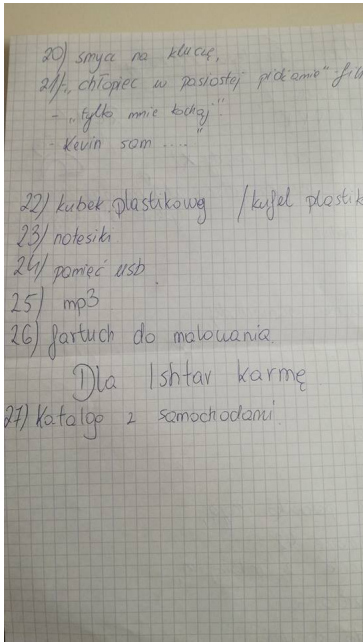 20) smycz na klucze,
21) „chłopiec w pasiastej pidżamie" fil
- „tylko mnie kochaj"
- Kevin sam ...."
22) kubek plastikowy / kufel plastik
23) notesik
24) pamięć usb
25) mp3
26) fartuch do malowania
Dla Ishtar karmę
27) Katalgo z samochodami